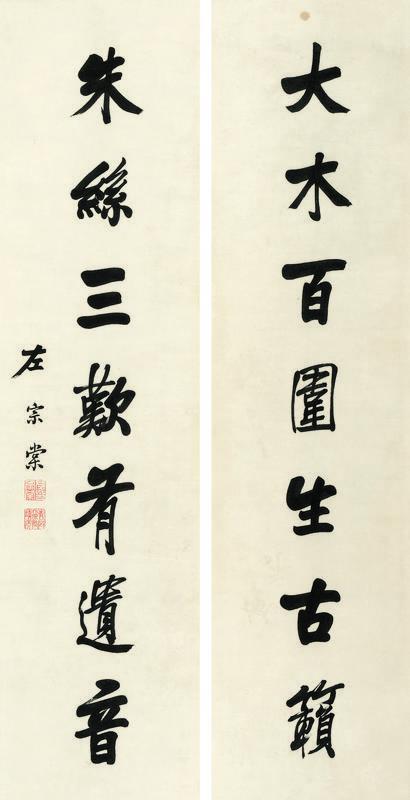 大木百圍生古籟
朱絲三歎有遺音
左宗棠